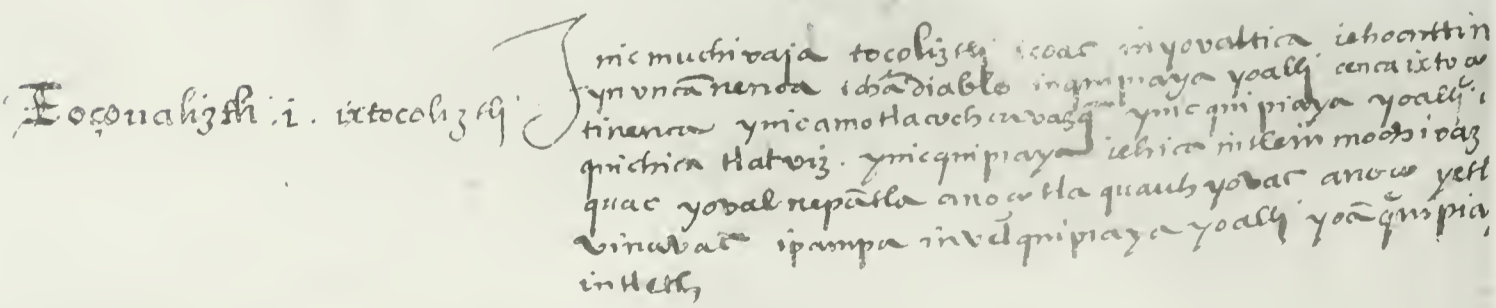 Toçoualiztli .i. ixtocoliztli
Inic muchivaia tocoliztli icoac in yovaltica iehoanttin
yn vncā nenca ichā diablo in quipiaya yoalli cenca ixtoco
tinenca ynic amo tlacuchcuvazq̄ ynic quipiaya yoalli. i
quichica tlatviz. ynic quipiaya iehica in tlein mochivaz
quac yovalnepātla anoço tla quauh yovac anoço yetl
vinavac ipampa in vel quipiaya yoalli yoā quipia
in tletl